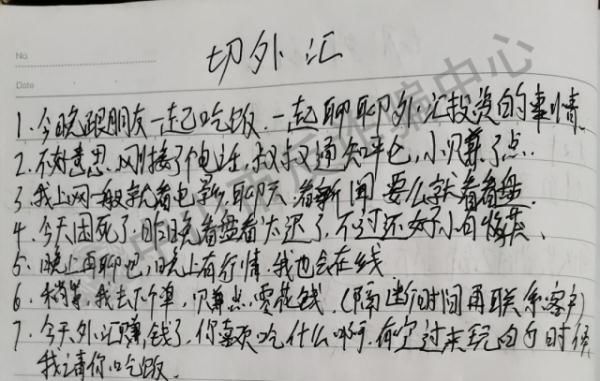 No.
Date
切外汇
1、今晚跟朋友一起吃饭、一起聊聊外汇投资的事情
2、不好意思、刚接了个电话，叔叔通知平仓，小赚了点、
3、我上网一般就看电影，聊天、看新闻 要么就看看盘、
4、今天困死了、昨晚看盘看太迟了、不过还好小有
5、晚上再聊吧，晚上有行情、我也会在线
6、稍等、我去下个单，赚点零花钱、(隔断时间再联系客户)
7、今天外汇赚钱了，你喜欢吃什么啊，有空过来玩的时候
我请你吃饭、
中心